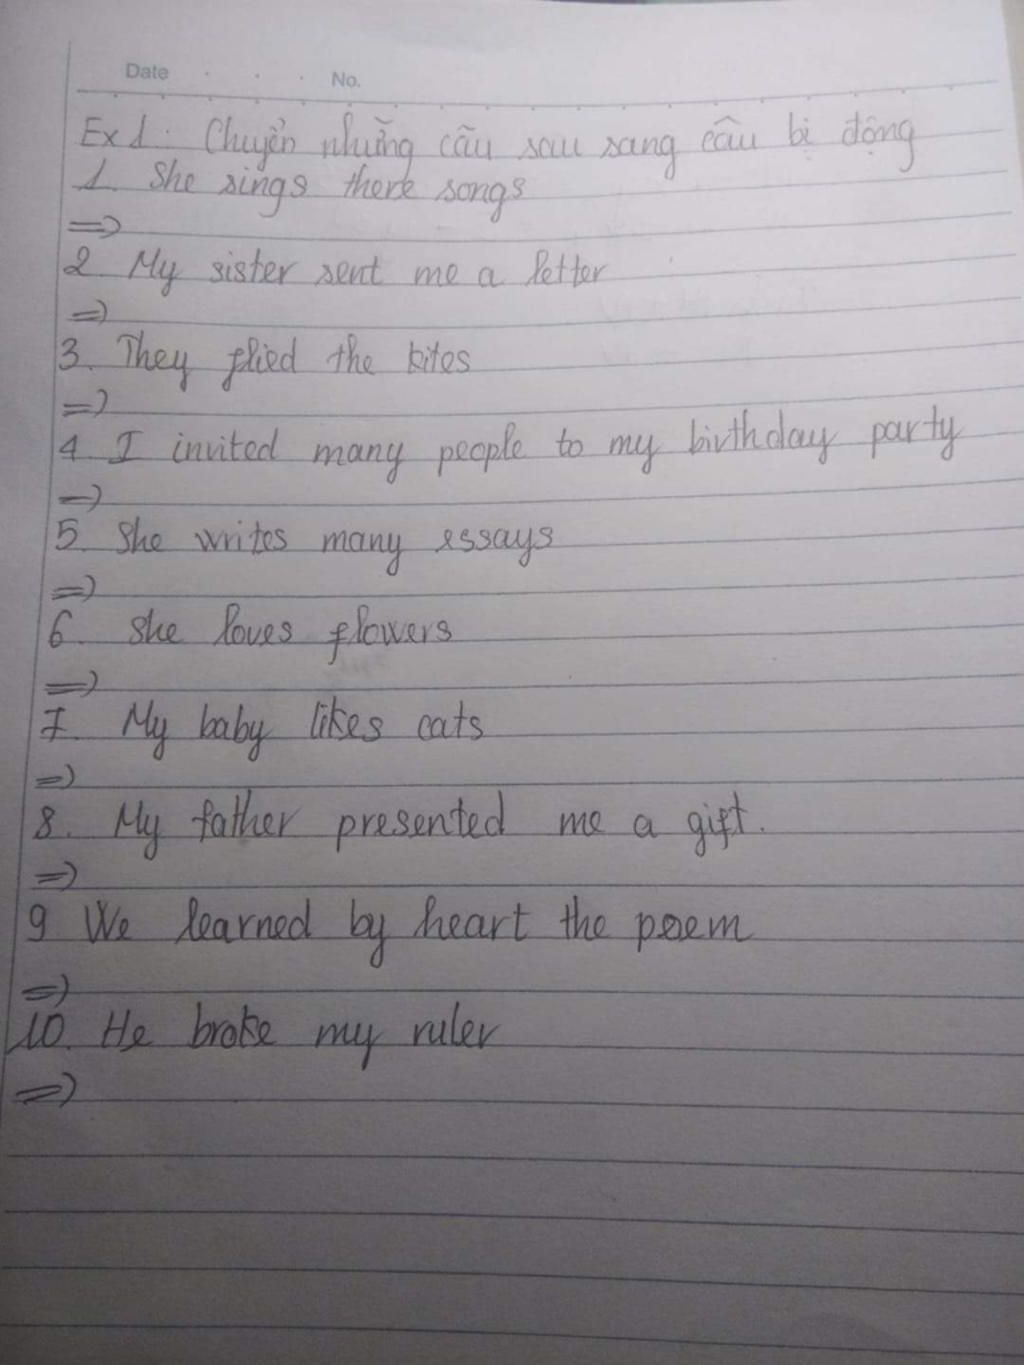 Date No.
Ex 1: Chuyển những câu sau sang câu bị động
1. She sings there songs
=>
2. My sister sent me a letter
=>
3. They flied the kites
=>
4. I invited many people to my birthday party
=>
5. She writes many essays
=>
6. She loves flowers
=>
7. My baby likes cats
=>
8. My father presented me a gift.
=>
9 We learned by heart the poem
=>
10. He broke my ruler
=>